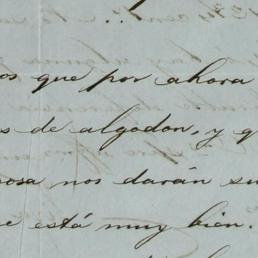 os que por ahora
s de algodon, y q
osa nos darán su
e está muy bien.